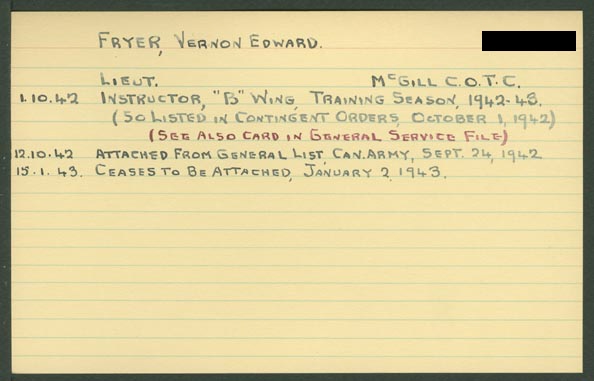 FRYER, VERNON EDWARD.
LIEUT. McGILL C.O.T.C.
1.10.42 INSTRUCTOR, "B" WING, TRAINING SEASON, 1942-43.
(SO LISTED IN CONTINGENT ORDERS, OCTOBER 1, 1942)
(SEE ALSO CARD IN GENERAL SERVICE FILE)
12.10.42 ATTACHED FROM GENERAL LIST, CAN. ARMY, SEPT. 24, 1942
15.1.43. CEASES TO BE ATTACHED, JANUARY 2, 1943.